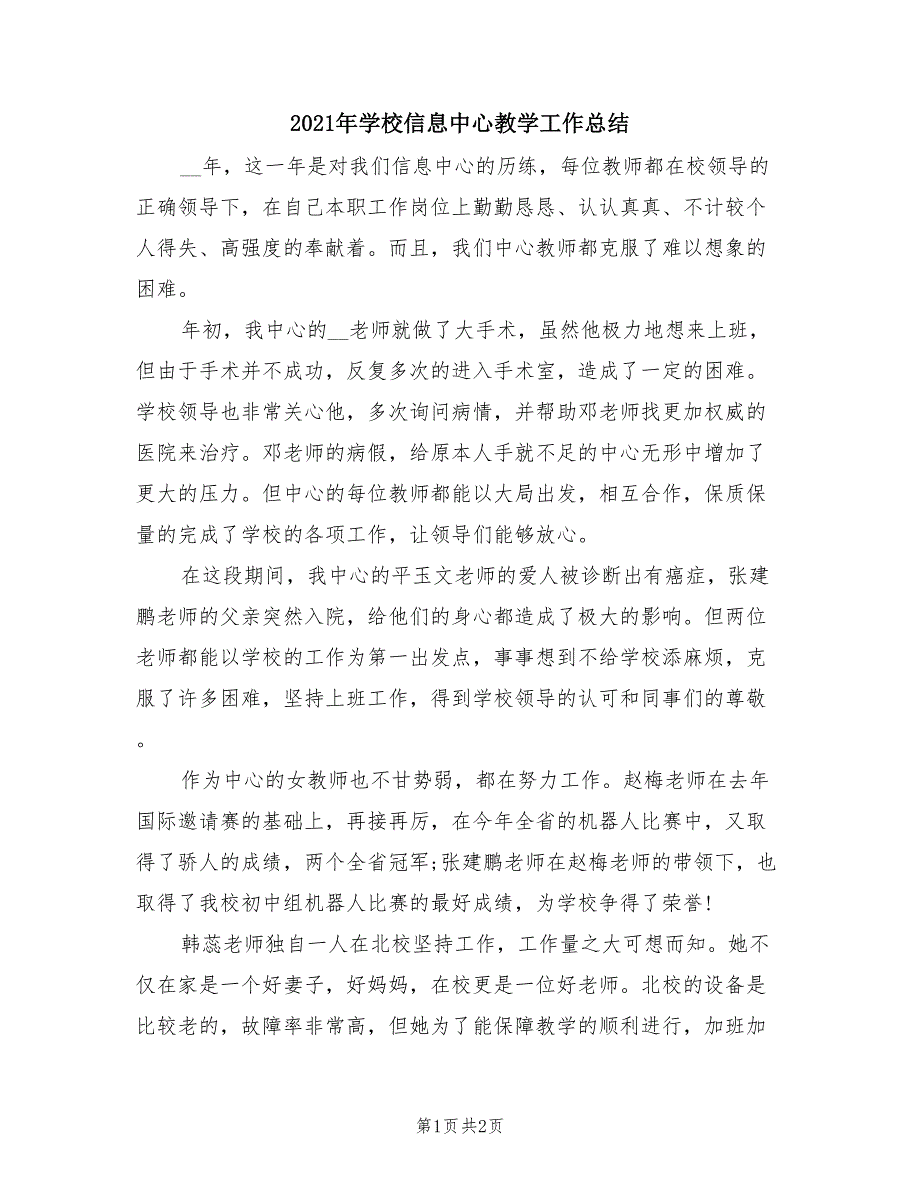 2021年学校信息中心教学工作总结
__年，这一年是对我们信息中心的历练，每位教师都在校领导的
正确领导下，在自己本职工作岗位上勤勤恳恳、认认真真、不计较个
人得失、高强度的奉献着。而且，我们中心教师都克服了难以想象的
困难。
年初，我中心的__老师就做了大手术，虽然他极力地想来上班，
但由于手术并不成功，反复多次的进入手术室，造成了一定的困难。
学校领导也非常关心他，多次询问病情，并帮助邓老师找更加权威的
医院来治疗。邓老师的病假，给原本人手就不足的中心无形中增加了
更大的压力。但中心的每位教师都能以大局出发，相互合作，保质保
量的完成了学校的各项工作，让领导们能够放心。
在这段期间，我中心的平玉文老师的爱人被诊断出有癌症，张建
鹏老师的父亲突然入院，给他们的身心都造成了极大的影响。但两位
老师都能以学校的工作为第一出发点，事事想到不给学校添麻烦，克
服了许多困难，坚持上班工作，得到学校领导的认可和同事们的尊敬
。
作为中心的女教师也不甘势弱，都在努力工作。赵梅老师在去年
国际邀请赛的基础上，再接再厉，在今年全省的机器人比赛中，又取
得了骄人的成绩，两个全省冠军;张建鹏老师在赵梅老师的带领下，也
取得了我校初中组机器人比赛的最好成绩，为学校争得了荣誉!
韩蕊老师独自一人在北校坚持工作，工作量之大可想而知。她不
仅在家是一个好妻子，好妈妈，在校更是一位好老师。北校的设备是
比较老的，故障率非常高，但她为了能保障教学的顺利进行，加班加
第1页共2页